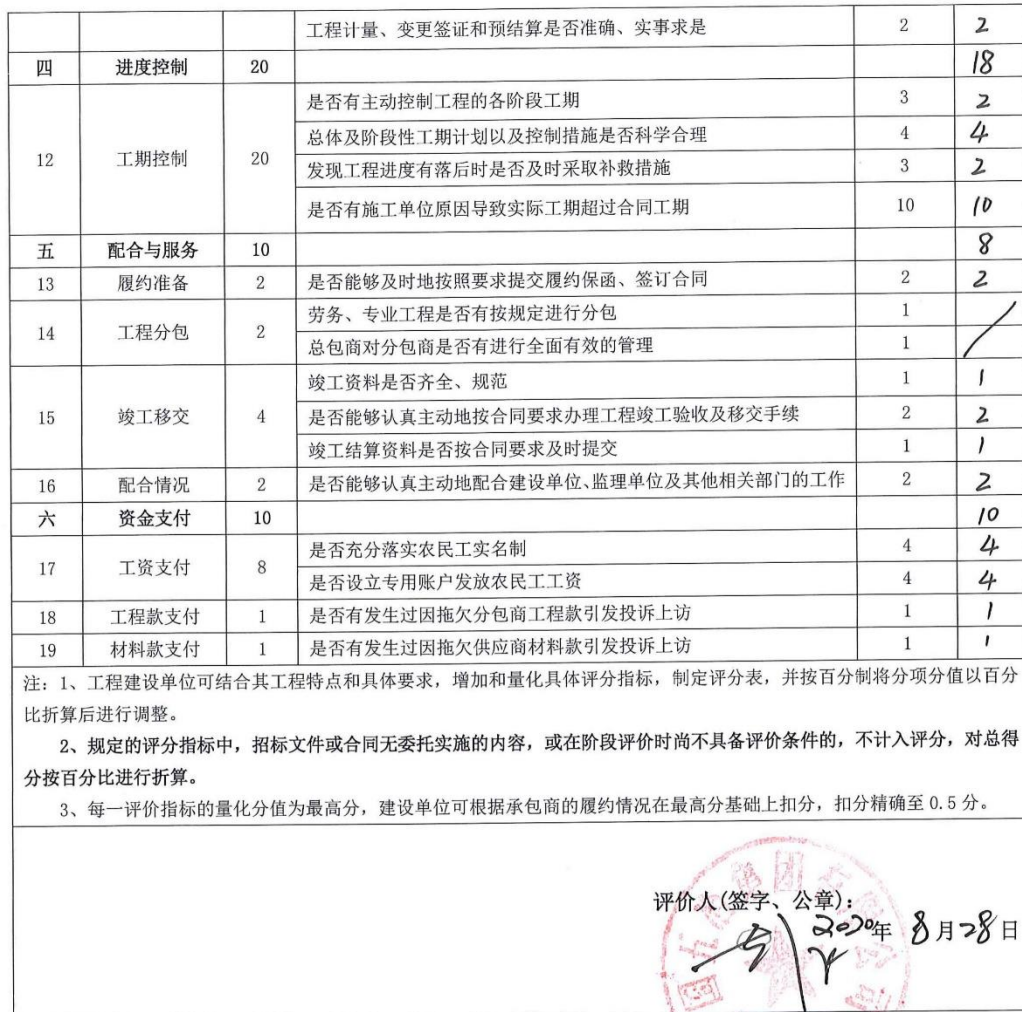 工程计量、变更签证和预结算是否准确、实事求是 2 2
四 进度控制 20 18
12 工期控制 20 是否有主动控制工程的各阶段工期 3 2
总体及阶段性工期计划以及控制措施是否科学合理 4 4
发现工程进度有落后时是否及时采取补救措施 3 2
是否有施工单位原因导致实际工期超过合同工期 10 10
五 配合与服务 10 8
13 履约准备 2 是否能够及时地按照要求提交履约保函、签订合同 2 2
14 工程分包 2 劳务、专业工程是否有按规定进行分包 1 /
总包商对分包商是否有进行全面有效的管理 1
15 竣工移交 4 竣工资料是否齐全、规范 1 1
是否能够认真主动地按合同要求办理工程竣工验收及移交手续 2 2
竣工结算资料是否按合同要求及时提交 1 1
16 配合情况 2 是否能够认真主动地配合建设单位、监理单位及其他相关部门的工作 2 2
六 资金支付 10 10
17 工资支付 8 是否充分落实农民工实名制 4 4
是否设立专用账户发放农民工工资 4 4
18 工程款支付 1 是否有发生过因拖欠分包商工程款引发投诉上访 1 1
19 材料款支付 1 是否有发生过因拖欠供应商材料款引发投诉上访 1 1
注：1、工程建设单位可结合其工程特点和具体要求，增加和量化具体评分指标，制定评分表，并按百分制将分项分值以百分
比折算后进行调整。
2、规定的评分指标中，招标文件或合同无委托实施的内容，或在阶段评价时尚不具备评价条件的，不计入评分，对总得
分按百分比进行折算。
3、每一评价指标的量化分值为最高分，建设单位可根据承包商的履约情况在最高分基础上扣分，扣分精确至 0.5 分。
评价人(签字、公章)：
2020年 8月28日